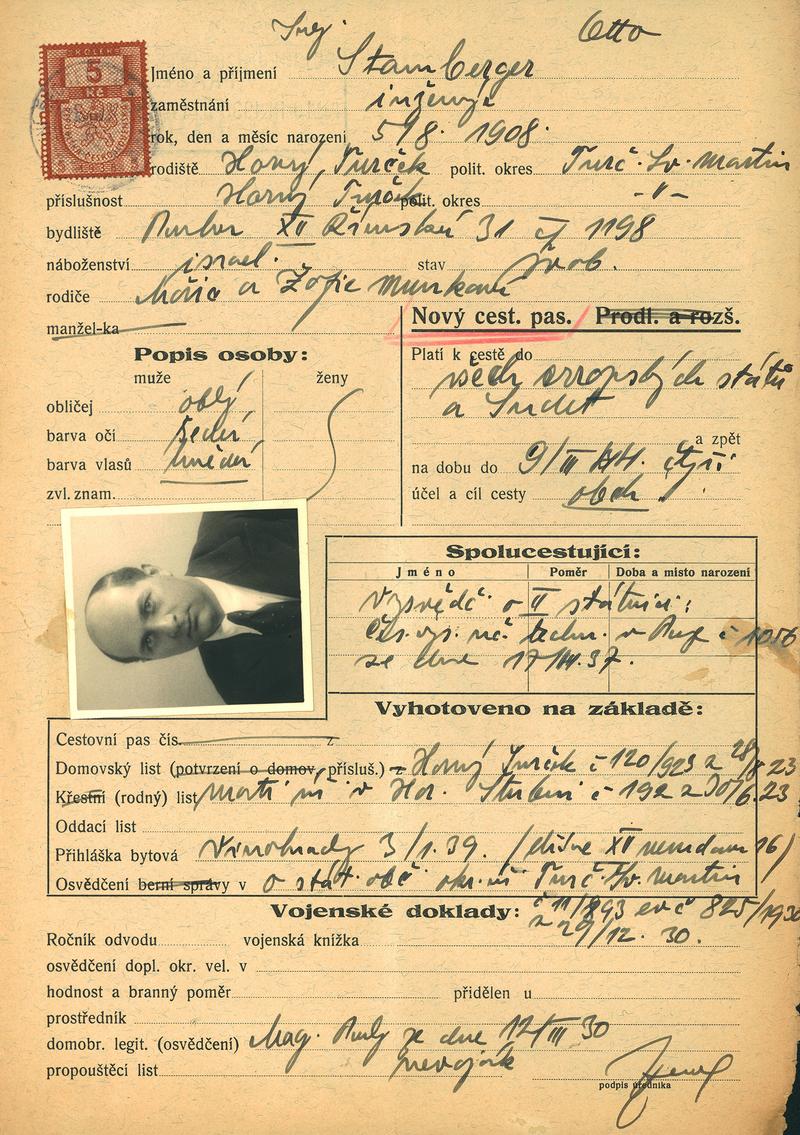 Ing. Otto
KOLEK
5
Kč
Jméno a příjmení Stamberger
zaměstnání inženýr
rok, den a měsíc narození 5/8. 1908.
rodiště Horný Turček polit. okres Turč. Sv. Martin
příslušnost Horný Turček polit. okres -"-
bydliště XII Římská 31 čp 1198
náboženství israel. stav svob.
rodiče a Žofie Munková
manžel-ka
Nový cest. pas. Prodl. a rozš.
Popis osoby:
muže ženy
obličej oblý
barva očí šedá
barva vlasů hnědá
zvl. znam.
Platí k cestě do
všech evropských států
a
a zpět
na dobu do 9/III 44. čtyři
účel a cíl cesty obch.
Spolucestující:
Jméno Poměr Doba a místo narození
Vysvědč. o II státnici:
čes. vys. uč. techn. v č 1056
ze dne 37.
Vyhotoveno na základě:
Cestovní pas čís. z
Domovský list (potvrzení o domov. přísluš.) z Horný Turček č 120/923 z 28/8 23
Křestní (rodný) list v Hor. Štubni č 192 z 30/6. 23
Oddací list
Přihláška bytová Vinohrady 3/1. 39. /dříve XV 16/
Osvědčení berní správy v o stát. obč. okr. úř. Turč. Sv. Martin
č 11/893 ev č 825/1930
z 29/12. 30.
Vojenské doklady:
Ročník odvodu vojenská knížka
osvědčení dopl. okr. vel. v
hodnost a branný poměr přidělen u
prostředník
domobr. legit. (osvědčení) Mag. ze dne 12/III 30
propouštěcí list nevoják
podpis úředníka